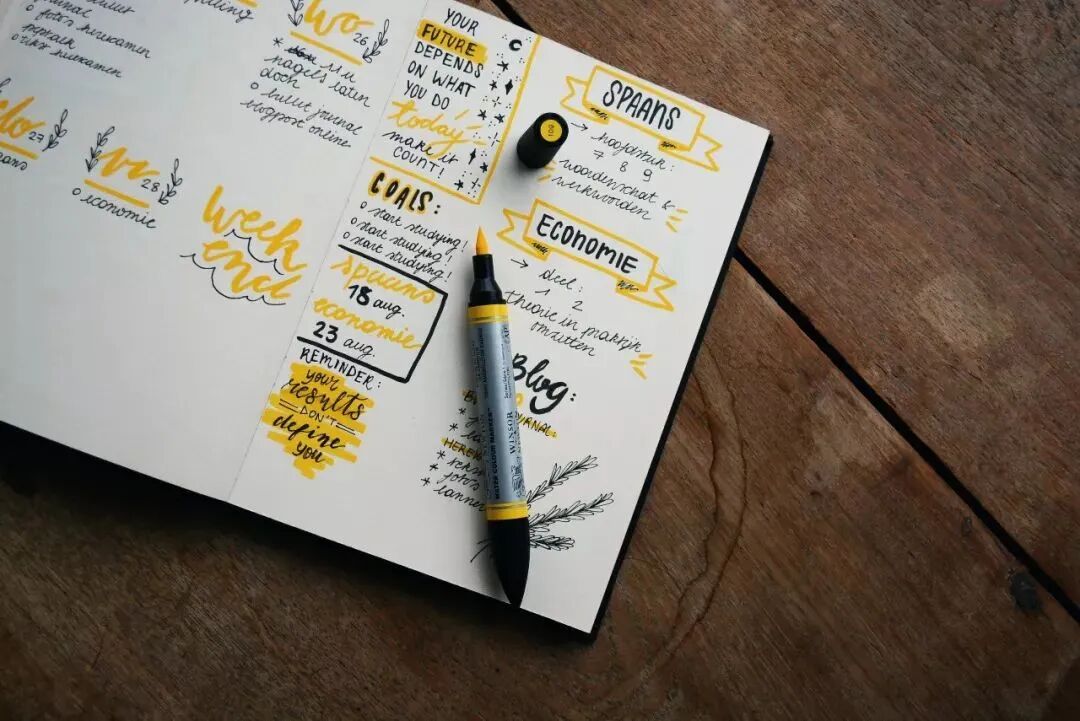 journal
fotos
sim kiekamen
wo 26
* uu
nagels laten
doen
o bullet journal
blogpost online
do 27
vr 28
o economie
week
end
YOUR
FUTURE
DEPENDS
ON WHAT
YOU DO
today
make it
COUNT!
GOALS:
o start studying!
o start studying!
o start studying!
spaans
18 aug.
economie
23 aug.
REMINDER:
your
results
DON'T
define
you
SPAANS
→ hoofdstuk:
7 8 9
woordenschat &
werkwoorden
ECONOMIE
→ deel:
1 2
theorie in praktijk
omzetten
Blog:
109
WATER COLOUR MARKER
WINSOR